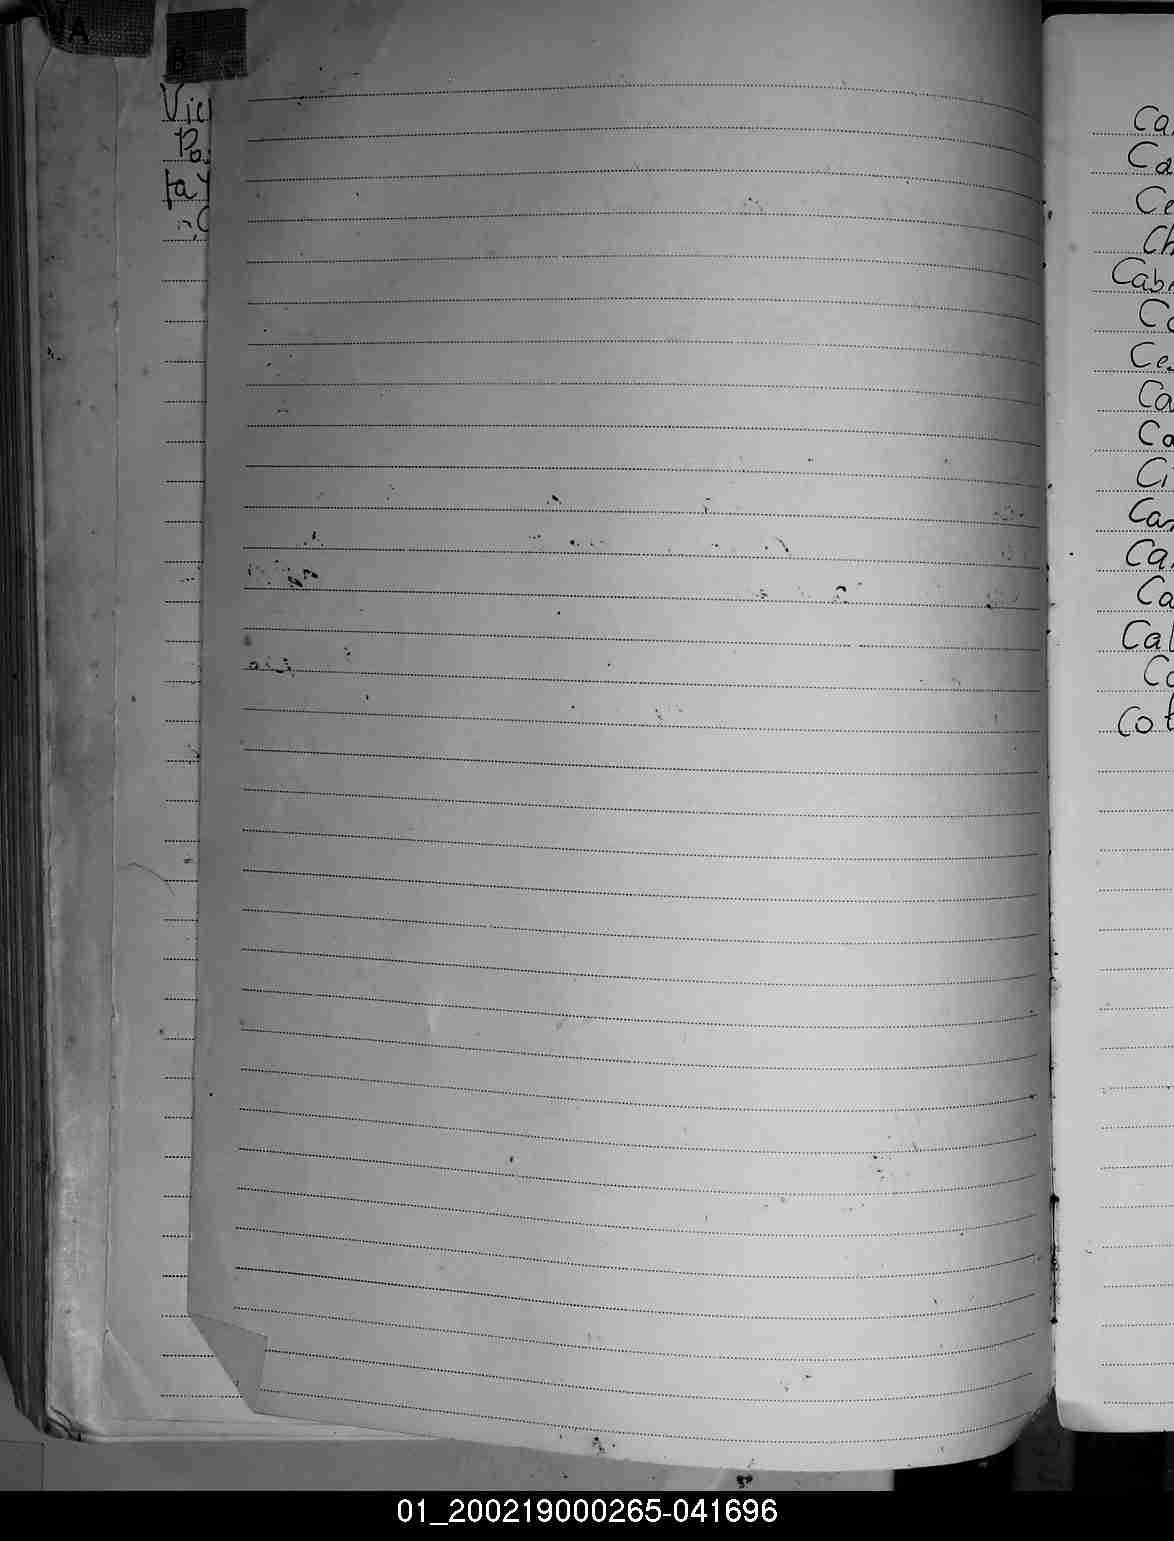 A
B
Vic
Po
tay
Ca
Ca
Ce
Ch
Cabr
Co
Ces
Ca
Co
Ci
Car
Car
Ca
Cal
Co
Cot
01_200219000265-041696